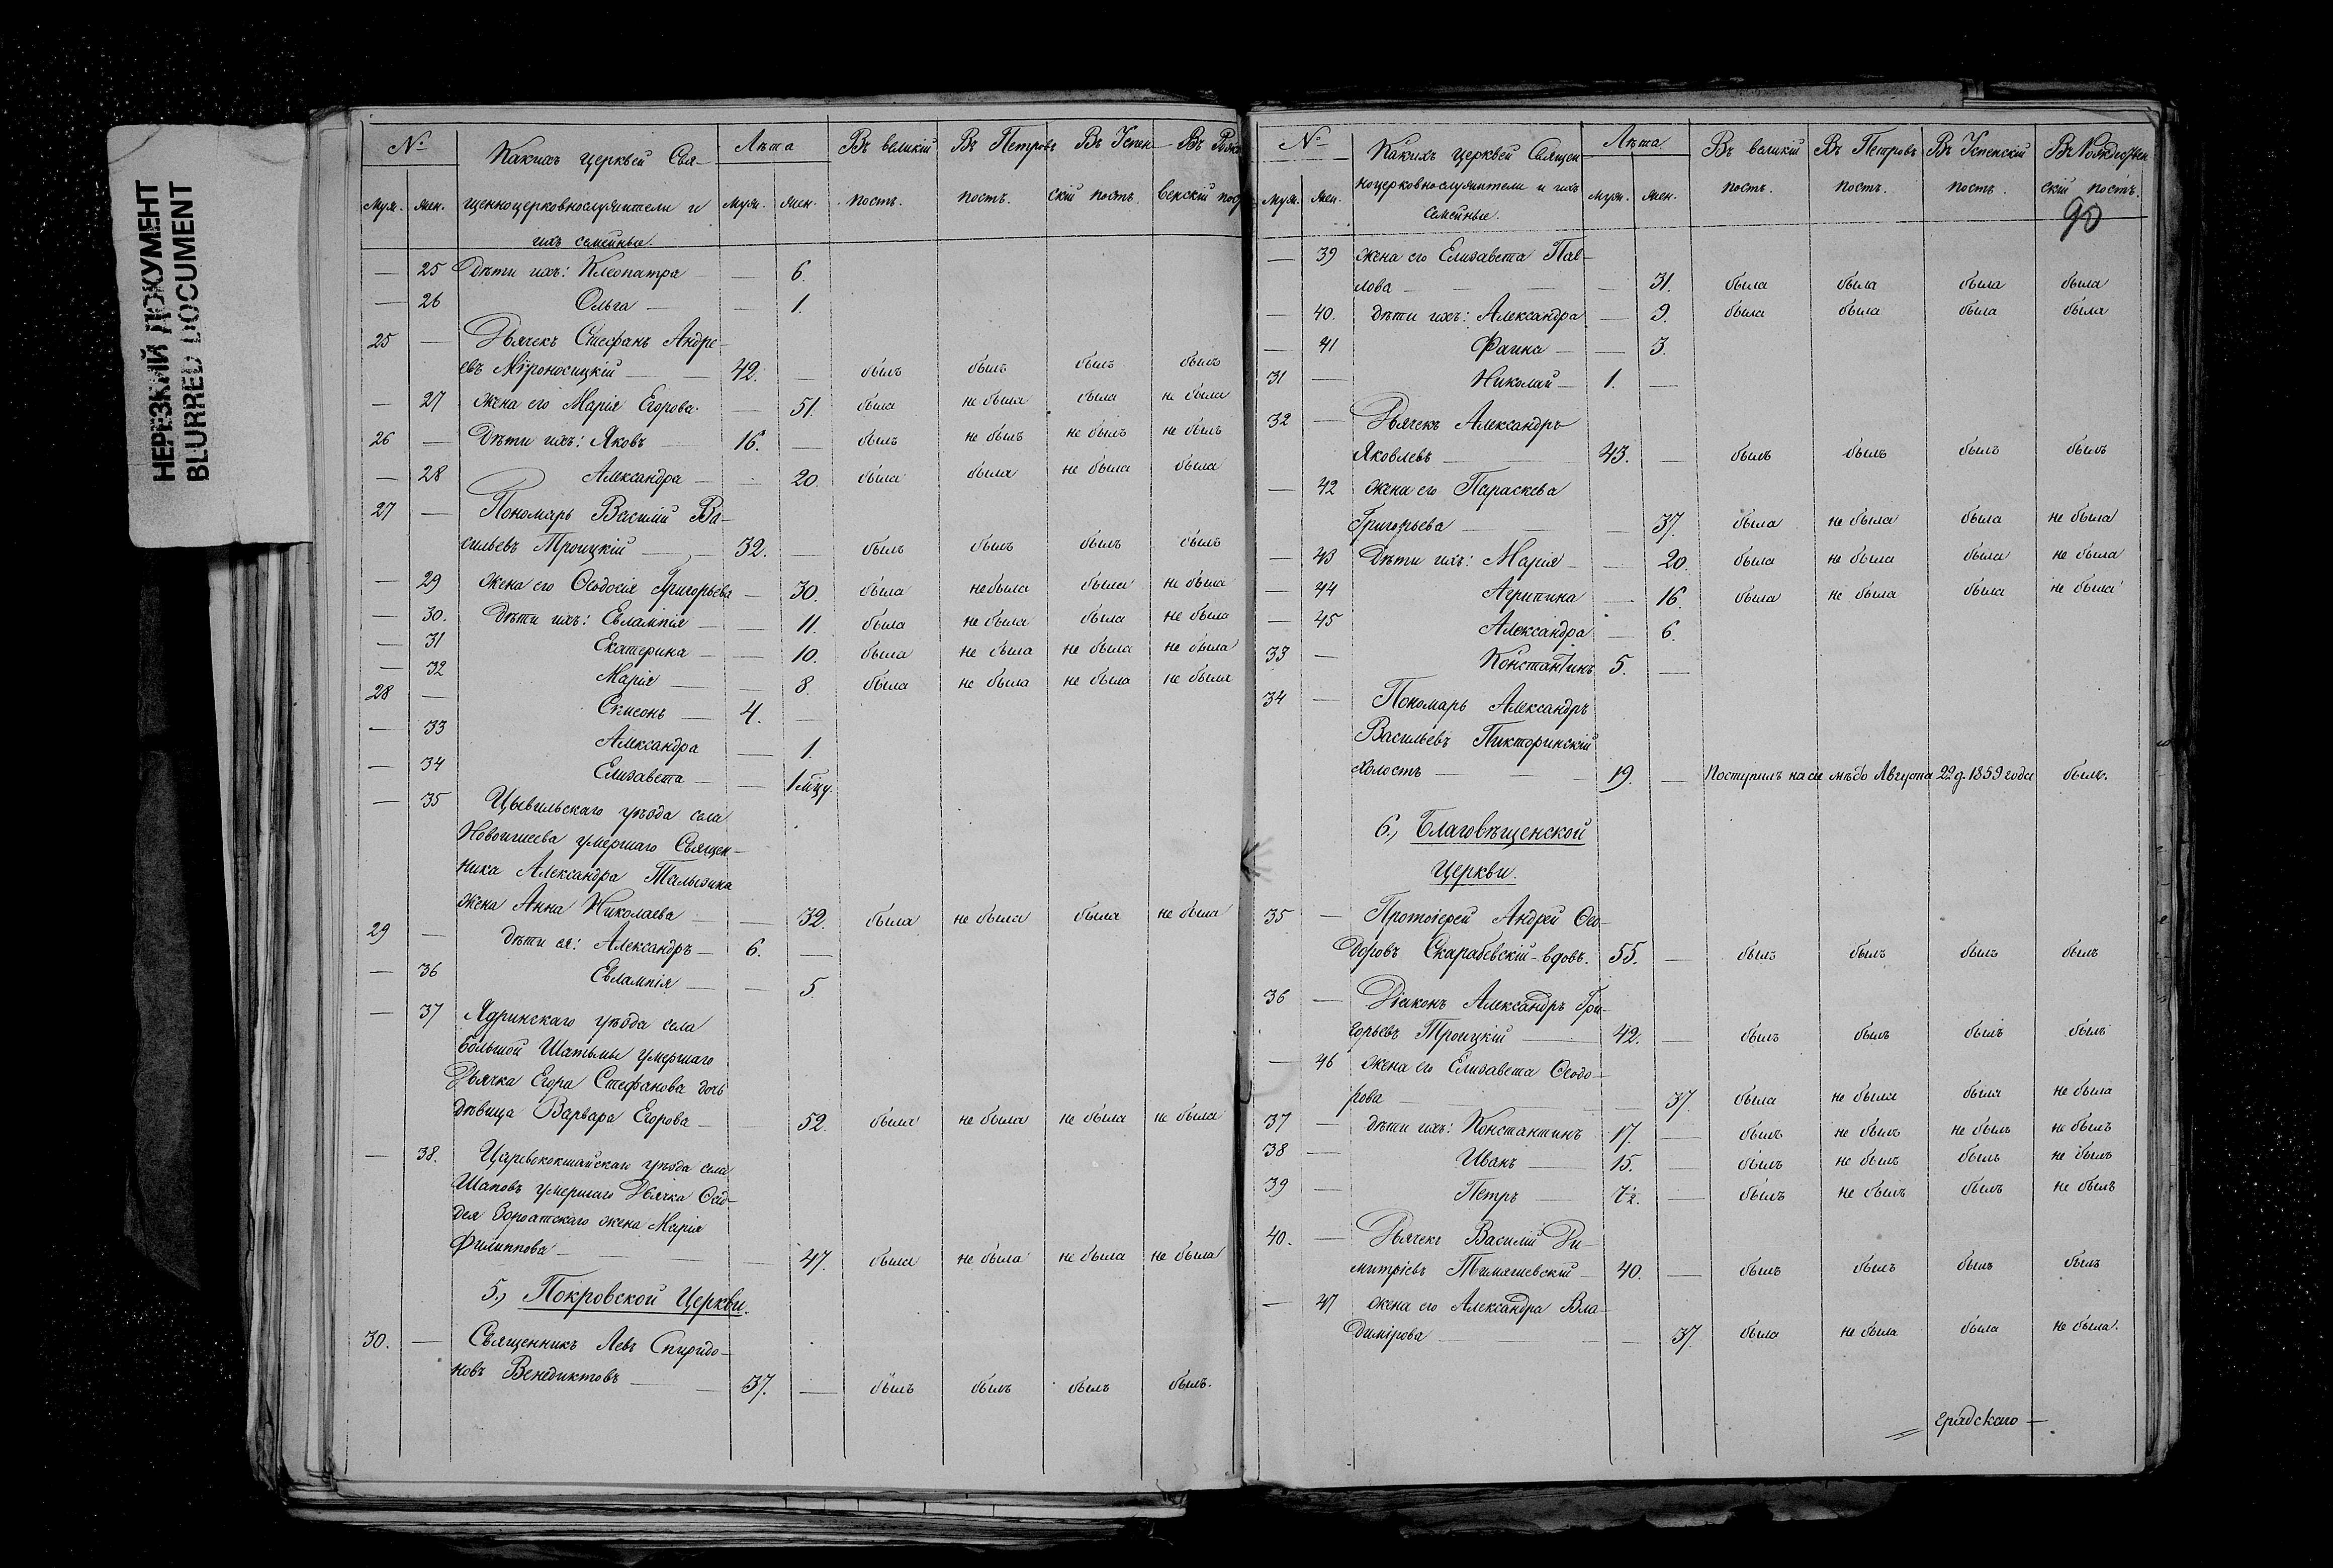 НЕРЕЗКИЙ ДОКУМЕНТ
BLURRED DOCUMENT
№ Какихъ церквей Свя- Лѣта Въ великій Въ Петровъ Въ Успен- Въ Рож
муж. жен. щенноцерковнослужители и муж. жен. постъ. постъ. скій постъ. венскій пос
ихъ семейные.
— 25 дѣти ихъ: Клеопатра — — 6.
— 26 Ольга — — 1.
25 — Дьячекъ Стефанъ Андре-
евъ Мѵроносицкій — 42. — былъ былъ былъ былъ
— 27 жена его Марія Егорова. — 51. была не была была не была
26 — Дѣти ихъ: Яковъ — 16. — былъ не былъ не былъ не былъ
— 28 Александра — — 20. была была не была была
27 — Пономарь Василій Ва-
сильевъ Троицкій — 32. — былъ былъ былъ былъ
— 29 жена его Ѳеодосія Григорьева — 30. была не была была не была
— 30. Дѣти ихъ: Евлампія — — 11. была не была была не была
— 31 Екатерина — — 10. была не была не была не была
— 32 Марія — — 8. была не была не была не была
28 — Симеонъ — 4. —
— 33 Александра — 1.
— 34 Елизавета — — 1 мцу.
— 35 Цывильскаго уѣзда села
умершаго Священ-
ника Александра Талызина
жена Анна Николаева — — 32. была не была была не была
29 — дѣти ея: Александръ — 6. —
— 36 Евлампія — — 5.
— 37 Ядринскаго уѣзда села
Большой Шатьмы умершаго
Дьячка Егора Стефанова дочь
дѣвица Варвара Егорова — 52. была не была не была не была
— 38. Царевококшайскаго уѣзда села
умершаго Дьячка
жена Марія
Филиппова — — 47. была не была не была не была
5., Покровской Церкви.
30. — Священникъ Левъ Спиридо-
новъ Венедиктовъ — 37. — былъ былъ былъ былъ.
№ Какихъ церквей Священ Лѣта Въ великій Въ Петровъ Въ Успенскій Въ Рождествен
муж. жен. ноцерковнослужители и ихъ муж. жен. постъ. постъ. постъ. скій постъ.
семейные.
90
— 39 жена его Елизавета Пав-
лова — — 31. была была была была
— 40. дѣти ихъ: Александра — 9. была была была была
— 41 Фаина — — 3.
31 — Николай — 1. —
32 — Дьячекъ Александръ
Яковлевъ — 43. — былъ былъ былъ былъ
— 42 жена его Параскева
Григорьева — — 37. была не была была не была
— 43 Дѣти ихъ: Марія — — 20. была не была была не была
— 44 Агрипина — 16. была не была была не была
— 45 Александра — 6.
33 — Константинъ 5. —
34 — Пономарь Александръ
Васильевъ Пикторинскій
холостъ — 19. — Поступилъ на сіе мѣсто Августа 22 д. 1859 года былъ.
6., Благовѣщенской
Церкви.
35 — Протоіерей Андрей Ѳео-
доровъ Скарабевскій - вдовъ. 55. — былъ былъ былъ былъ
36 — Діаконъ Александръ Гри-
горьевъ Троицкій — 42. — былъ былъ былъ былъ
— 46 жена его Елизавета Ѳеодо-
рова — — 37. была не была была не была
37 — дѣти ихъ: Константинъ 17. — былъ не былъ не былъ не былъ
38 — Иванъ — 15. — былъ не былъ былъ не былъ
39 — Петръ — 7½. — былъ не былъ былъ не былъ
40. — Дьячекъ Василій Ди-
митріевъ Тимяшевскій — 40. — былъ былъ былъ былъ
— 47 жена его Александра Вла-
димірова — — 37. была не была была не была.
= градскаго —